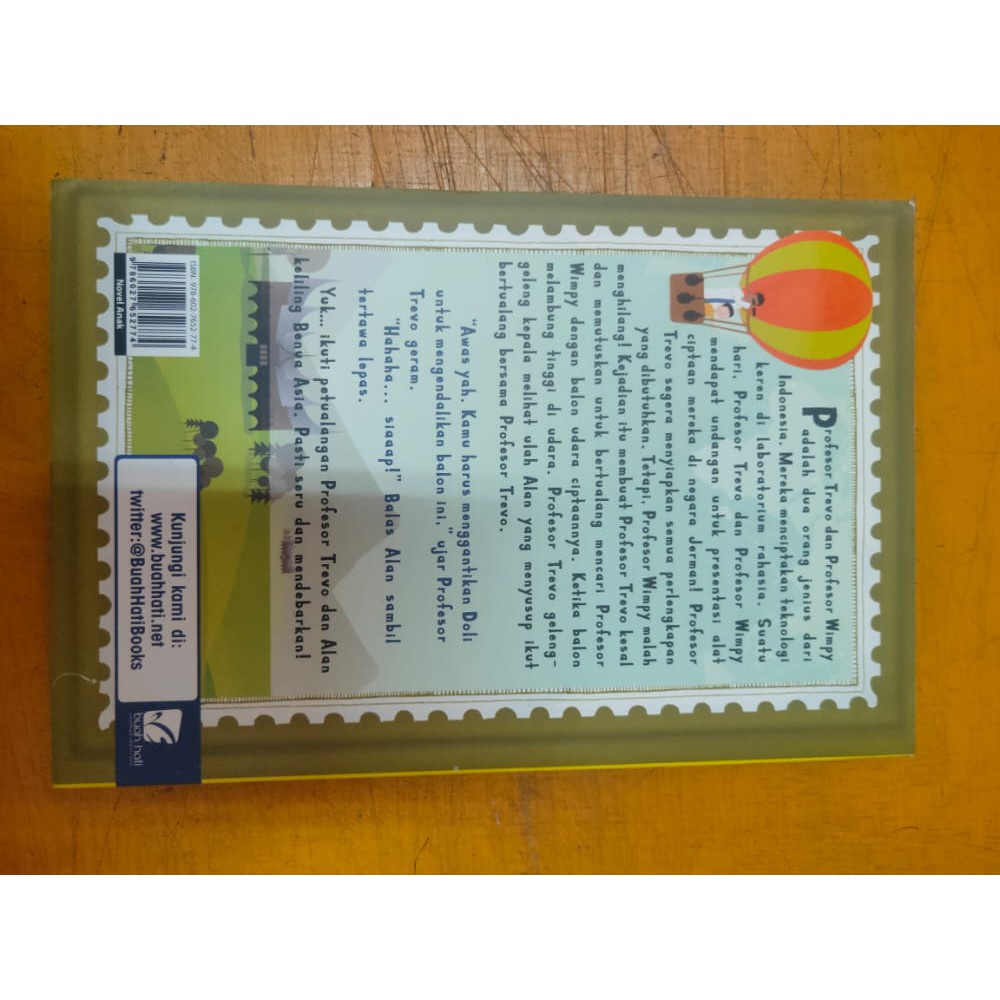 Profesor Trevo dan Profesor Wimpy
adalah dua orang jenius dari
Indonesia. Mereka menciptakan teknologi
keren di laboratorium rahasia. Suatu
hari, Profesor Trevo dan Profesor Wimpy
mendapat undangan untuk presentasi alat
ciptaan mereka di negara Jerman! Profesor
Trevo segera menyiapkan semua perlengkapan
yang dibutuhkan. Tetapi, Profesor Wimpy malah
menghilang! Kejadian itu membuat Profesor Trevo kesal
dan memutuskan untuk bertualang mencari Profesor
Wimpy dengan balon udara ciptaannya. Ketika balon
melambung tinggi di udara. Profesor Trevo geleng-
geleng kepala melihat ulah Alan yang menyusup ikut
bertualang bersama Profesor Trevo.
"Awas yah! Kamu harus menggantikan Doli
untuk mengendalikan balon ini," ujar Profesor
Trevo geram.
"Hahaha... siaaap!" Balas Alan sambil
tertawa lepas.
Yuk... ikuti petualangan Profesor Trevo dan Alan
keliling Benua Asia. Pasti seru dan mendebarkan!
ISBN: 978-602-7652-77-4
9 786027 652774
Novel Anak
Kunjungi kami di:
www.buahhati.net
twitter:@BuahHatiBooks
buah hati